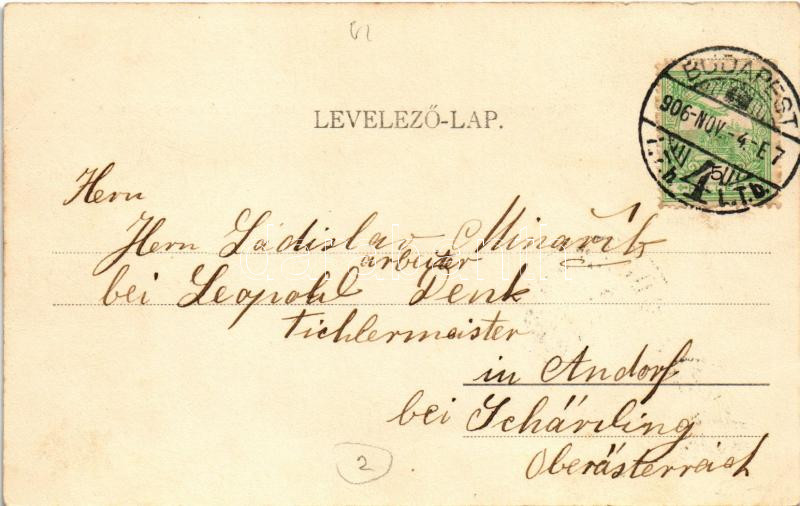 LEVELEZŐ-LAP.
BUDAPEST
906-NOV.-4.-E 7
Herrn
Herrn Ládislav Minařik
arbeiter
bei Leopold Denk
Tichlermeister
in Andorf
bei Schärding
Oberästerreich
2